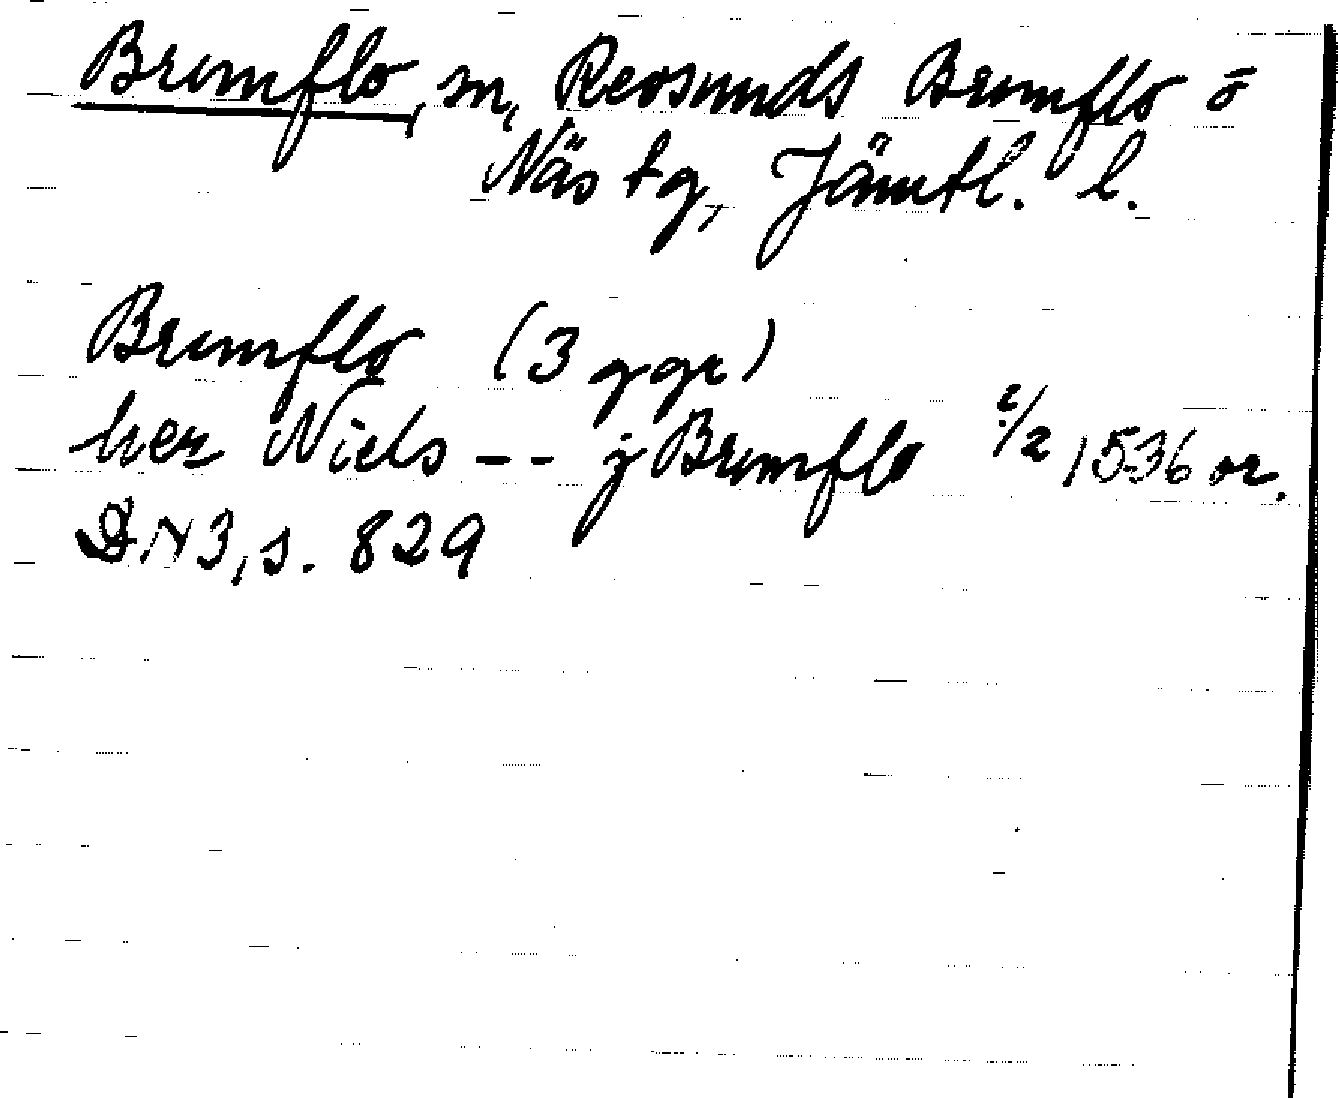 Brunflo, sn, Revsunds Brunflo o
Näs tg, Jämtl. l.
Brunflo (3 ggr)
her Niels -- j Brunflo 2/2 1536 or.
DN 3, s. 829